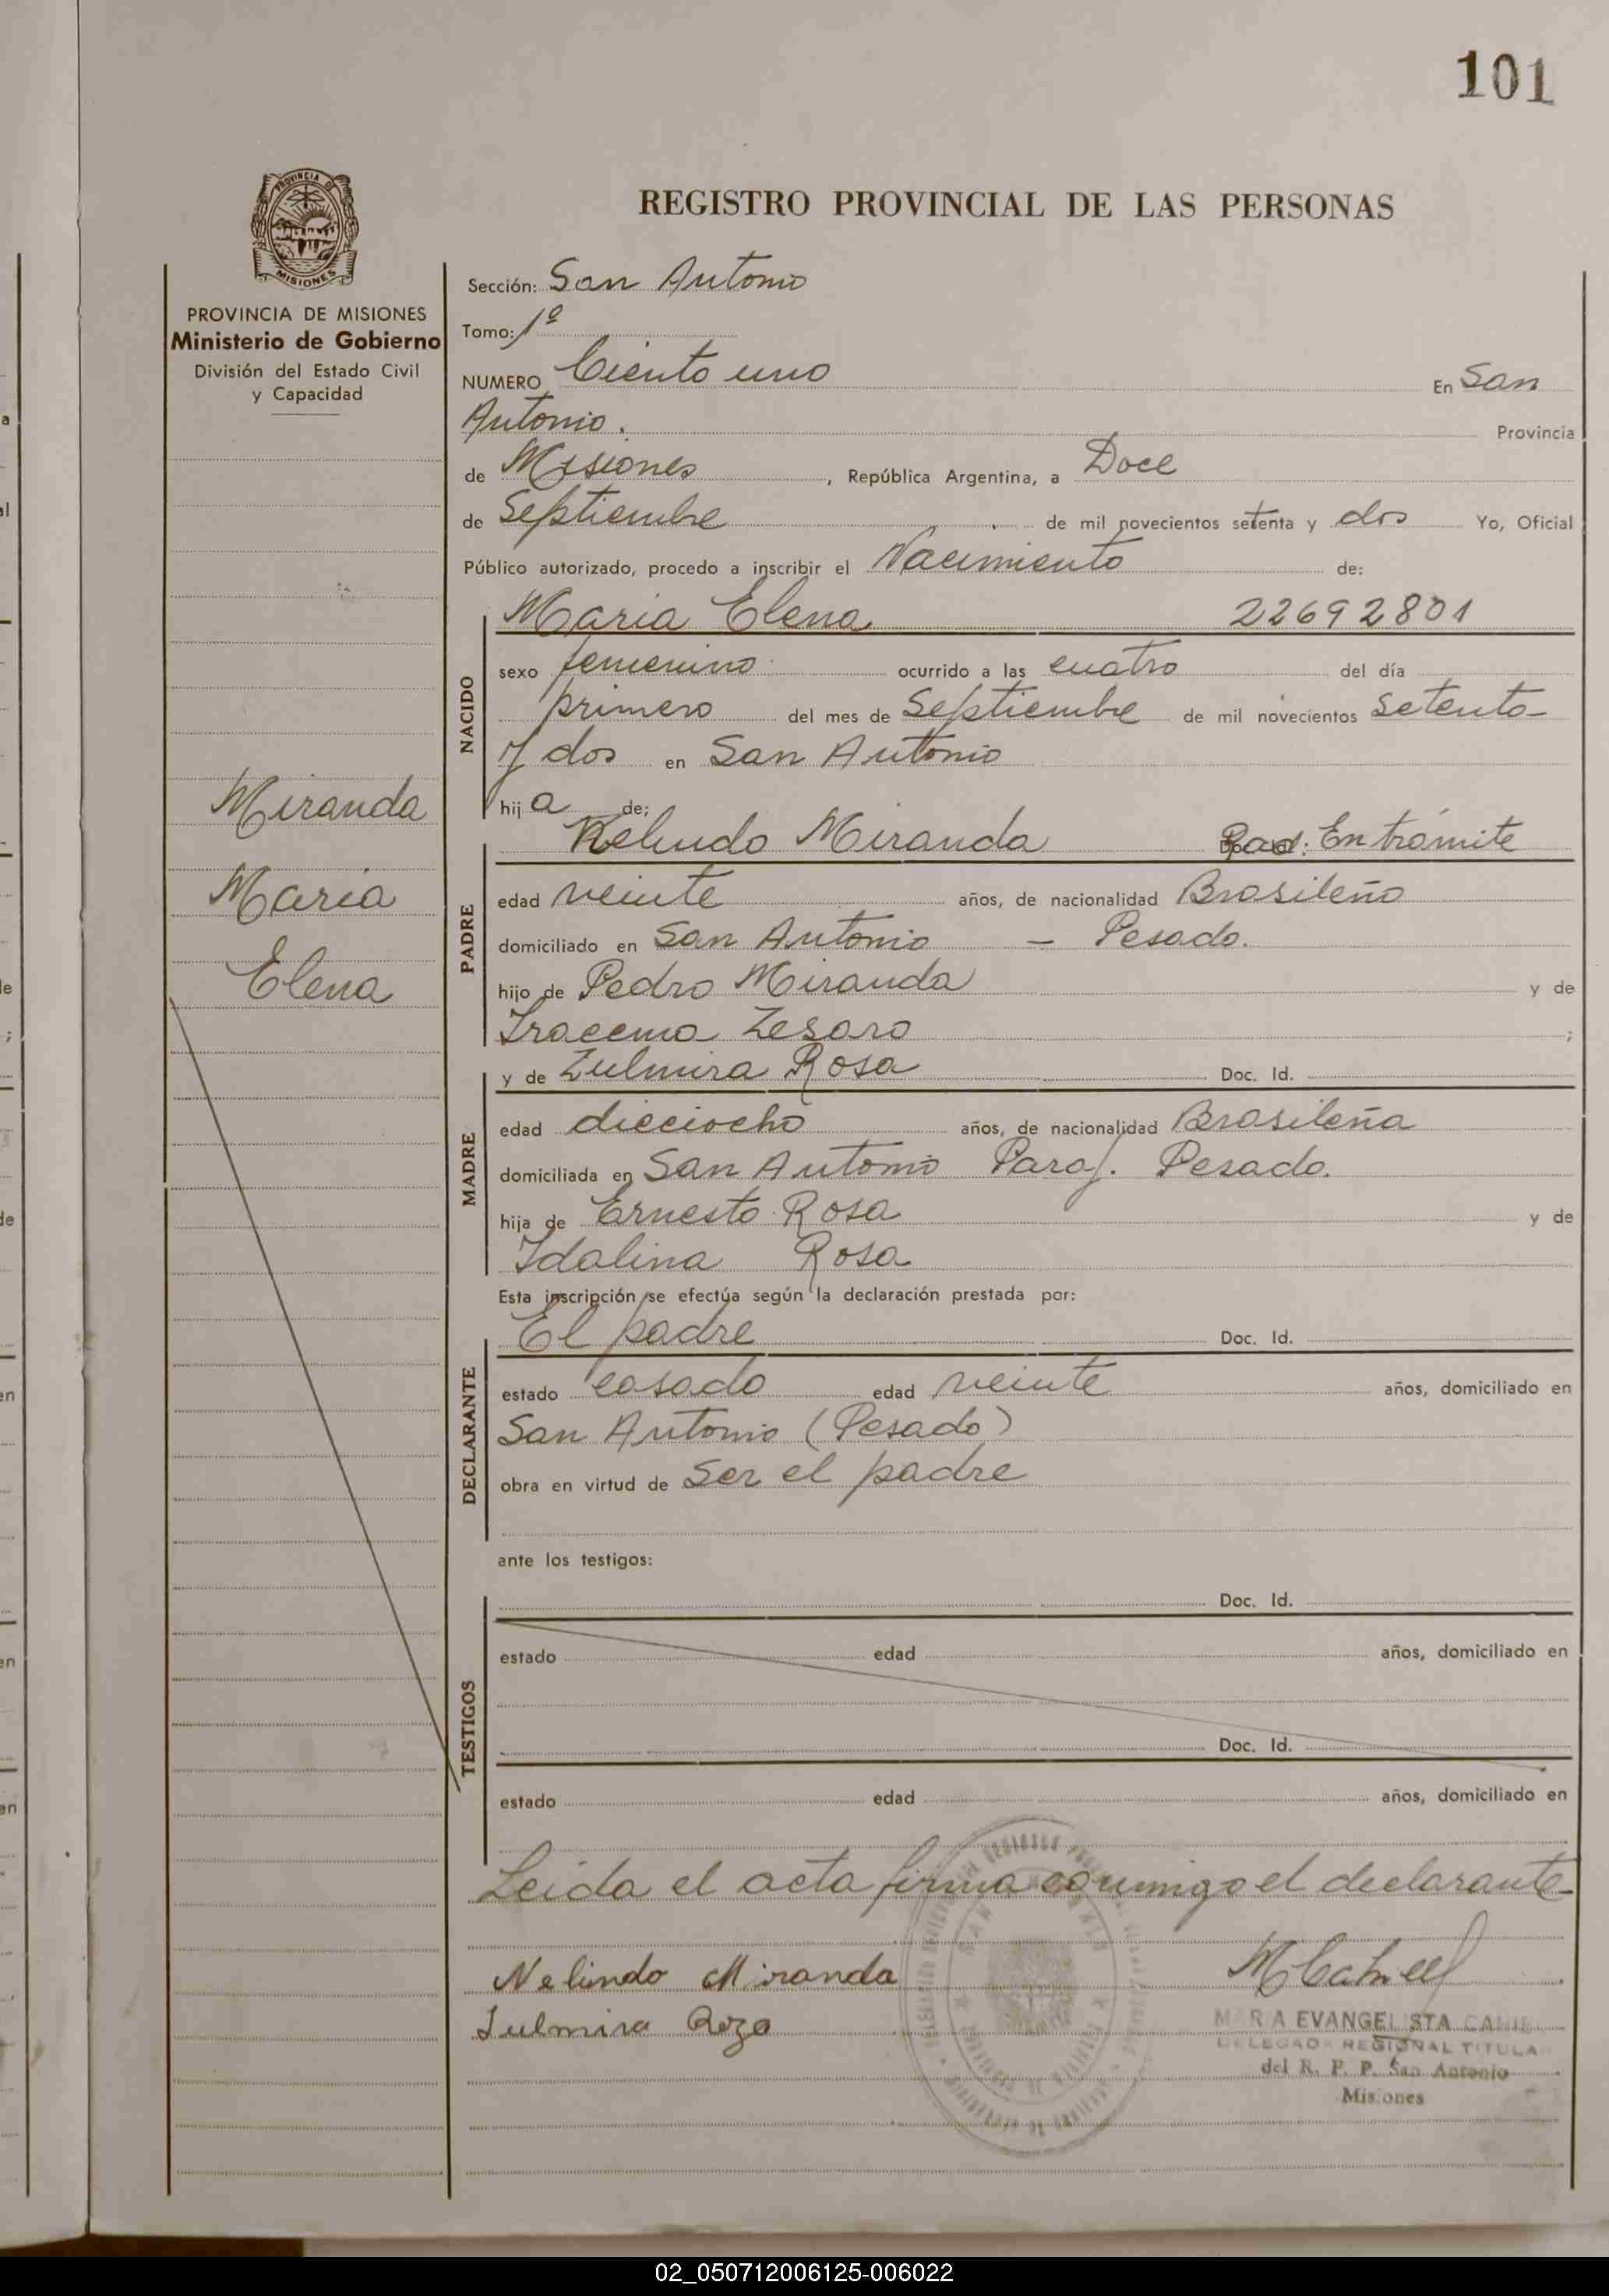 101
PROVINCIA DE MISIONES
REGISTRO PROVINCIAL DE LAS PERSONAS
PROVINCIA DE MISIONES
Ministerio de Gobierno
División del Estado Civil
y Capacidad
Miranda
Maria
Elena
Sección: San Antonio
Tomo: 1º
NUMERO Ciento uno En San
Antonio. Provincia
de Misiones, República Argentina, a Doce
de Septiembre de mil novecientos setenta y dos Yo, Oficial
Público autorizado, procedo a inscribir el Nacimiento de:
NACIDO
Maria Elena 22692801
sexo femenino ocurrido a las cuatro del día
primero del mes de Septiembre de mil novecientos Setenta-
y dos en San Antonio
hija de:
PADRE
Nelindo Miranda En trámite
edad veinte años, de nacionalidad Brasileño
domiciliado en San Antonio - Pesado.
hijo de Pedro Miranda y de
Iracema Zesaro ;
MADRE
y de Zulmira Rosa Doc. Id.
edad dieciocho años, de nacionalidad Brasileña
domiciliada en San Antonio Paraj. Pesado.
hija de Ernesto Rosa y de
Idalina Rosa
Esta inscripción se efectúa según la declaración prestada por:
DECLARANTE
El padre Doc. Id.
estado casado edad veinte años, domiciliado en
San Antonio (Pesado)
obra en virtud de Ser el padre
ante los testigos:
TESTIGOS
Doc. Id.
estado edad años, domiciliado en
Doc. Id.
estado edad años, domiciliado en
Leida el acta firma conmigo el declarante-
Nelindo Miranda
Zulmira Roza
MARIA EVANGELISTA
DELEGADA REGIONAL TITULAR
del R. P. P. San Antonio
Misiones
02_050712006125-006022